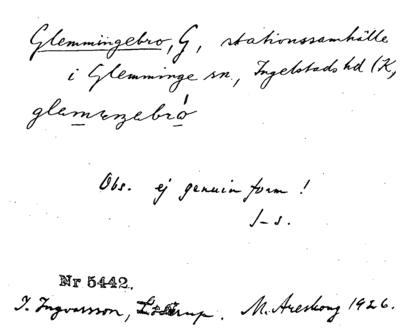 Glemmingebro, G, stationssamhälle
i Glemminge sn., Ingelstads hd (K,
Obs. ej genuin form!
J-s.
Nr 5442.
I. Ingvarsson, M. Areskoug 1926.